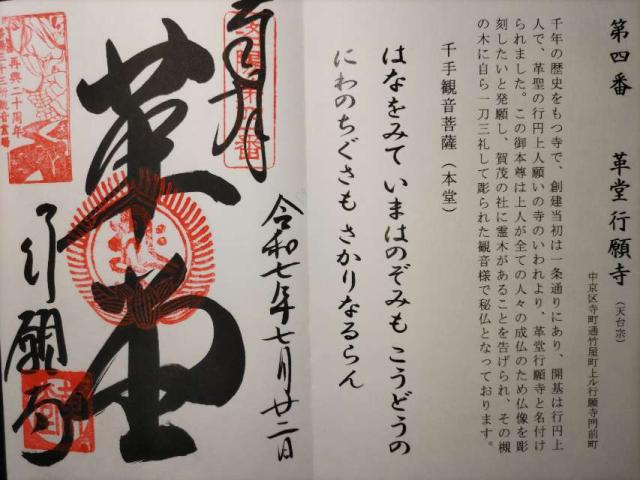 第四番 革堂行願寺（天台宗）
中京区寺町通竹屋町上ル行願寺門前町
千年の歴史をもつ寺で、創建当初は一条通りにあり、開基は行円上
人で、革聖の行円上人願いの寺のいわれより、革堂行願寺と名付け
られました。この御本尊は上人が全ての人々の成仏のため仏像を彫
刻したいと発願し、賀茂の社に霊木があることを告げられ、その槻
の木に自ら一刀三礼して彫られた観音様で秘仏となっております。
千手観音菩薩（本堂）
はなをみて いまはのぞみも こうどうの
にわのちぐさも さかりなるらん
奉拝
令和七年七月廿二日
革堂
行願寺
再興二十周年